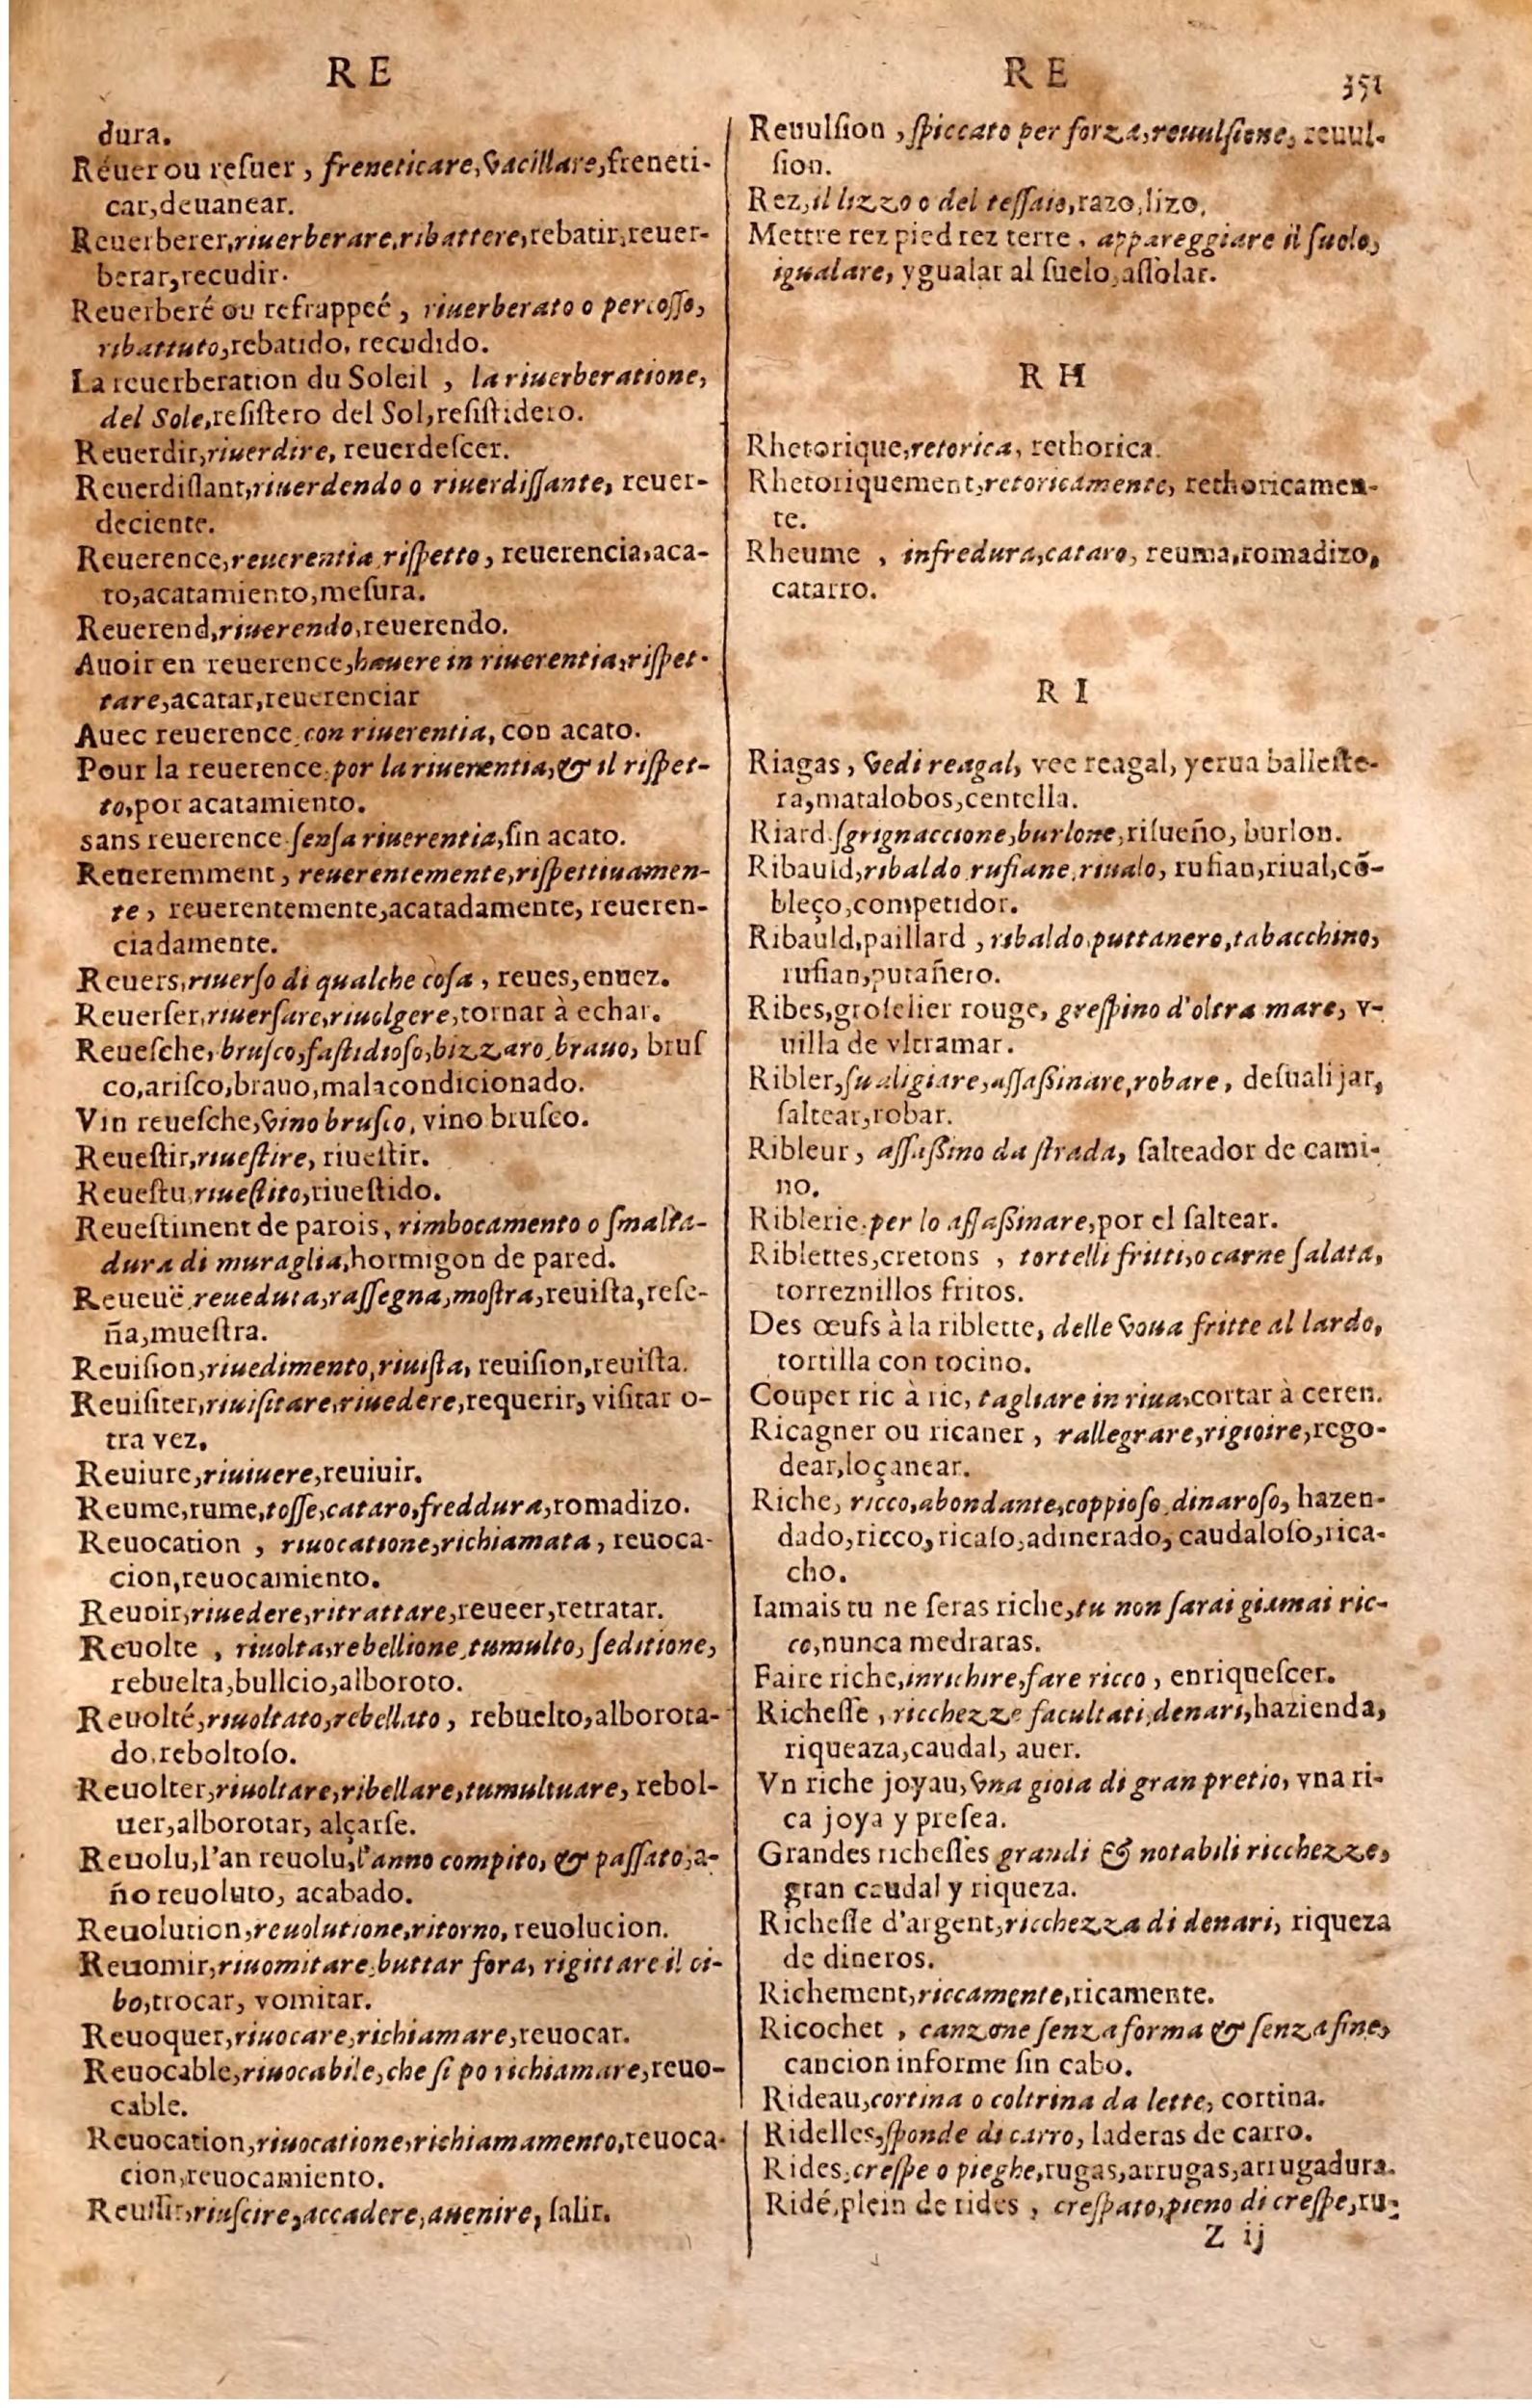 RE
dura.
Réuer ou reſuer, freneticare, vacillare, freneti-
car, deuanear.
Reuerberer, riuerberare, ribattere, rebatir, reuer-
berar, recudir.
Reuerberé ou refrappeé, riuerberato o percoſſo,
ribattuto, rebatido, recudido.
La reuerberation du Soleil, la riuerberatione,
del Sole, reſiſtero del Sol, reſiſtidero.
Reuerdir, riuerdire, reuerdeſcer.
Reuerdiſſant, riuerdendo o riuerdiſſante, reuer-
deciente.
Reuerence, reuerentia riſpetto, reuerencia, aca-
to, acatamiento, meſura.
Reuerend, riuerendo, reuerendo.
Auoir en reuerence, hauere in riuerentia, riſpet-
tare, acatar, reuerenciar
Auec reuerence, con riuerentia, con acato.
Pour la reuerence, por la riuerentia, & il riſpet-
to, por acatamiento.
sans reuerence ſenſa riuerentia, ſin acato.
Reueremment, reuerentemente, riſpettiuamen-
te, reuerentemente, acatadamente, reueren-
ciadamente.
Reuers, riuerſo di qualche coſa, reues, enuez.
Reuerſer, riuerſare, riuolgere, tornar à echar.
Reueſche, bruſco, faſtidioſo, bizzaro, brauo, bruſ
co, ariſco, brauo, malacondicionado.
Vin reueſche, vino bruſco, vino bruſco.
Reueſtir, riueſtire, riueſtir.
Reueſtu, riueſtito, riueſtido.
Reueſtiment de parois, rimbocamento o ſmalta-
dura di muraglia, hormigon de pared.
Reueuë, reueduta, raſſegna, moſtra, reuiſta, reſe-
ña, mueſtra.
Reuiſion, riuedimento, riuiſta, reuiſion, reuiſta.
Reuiſiter, riuiſitare, riuedere, requerir, viſitar o-
tra vez.
Reuiure, riuiuere, reuiuir.
Reume, rume, toſſe, cataro, freddura, romadizo.
Reuocation, riuocatione, richiamata, reuoca-
cion, reuocamiento.
Reuoir, riuedere, ritrattare, reueer, retratar.
Reuolte, riuolta, rebellione, tumulto, ſeditione,
rebuelta, bullcio, alboroto.
Reuolté, riuoltato, rebellato, rebuelto, alborota-
do, reboltoſo.
Reuolter, riuoltare, ribellare, tumultuare, rebol-
uer, alborotar, alçarſe.
Reuolu, l'an reuolu, l'anno compito, & paſſato, a-
ño reuoluto, acabado.
Reuolution, reuolutione, ritorno, reuolucion.
Reuomir, riuomitare, buttar fora, rigittare il ci-
bo, trocar, vomitar.
Reuoquer, riuocare, richiamare, reuocar.
Reuocable, riuocabile, che ſi po richiamare, reuo-
cable.
Reuocation, riuocatione, richiamamento, reuoca-
cion, reuocamiento.
Reuſſir, riuſcire, accadere, auenire, ſalir.
RE
351
Reuulſion, ſpiccato per forza, reuulſione, reuul-
ſion.
Rez, il lizzo o del teſſaio, razo, lizo.
Mettre rez pied rez terre, appareggiare il ſuolo,
igualare, ygualar al ſuelo, aſſolar.
RH
Rhetorique, retorica, rethorica.
Rhetoriquement, retoricamente, rethoricamen-
te.
Rheume, infredura, cataro, reuma, romadizo,
catarro.
RI
Riagas, vedi reagal, vee reagal, yerua balleſte-
ra, matalobos, centella.
Riard ſgrignaccione, burlone, riſueño, burlon.
Ribauld, ribaldo rufiane, riualo, rufian, riual, cõ-
bleço, competidor.
Ribauld, paillard, ribaldo, puttanero, tabacchino,
rufian, putañero.
Ribes, groſelier rouge, greſpino d'oltra mare, v-
uilla de vltramar.
Ribler, ſualigiare, aſſaßinare, robare, deſualijar,
ſaltear, robar.
Ribleur, aſſaßino da ſtrada, ſalteador de cami-
no.
Riblerie, per lo aſſaßinare, por el ſaltear.
Riblettes, cretons, tortelli fritti, o carne ſalata,
torreznillos fritos.
Des œufs à la riblette, delle voua fritte al lardo,
tortilla con tocino.
Couper ric à ric, tagliare in riua, cortar à ceren.
Ricagner ou ricaner, rallegrare, rigioire, rego-
dear, loçanear.
Riche, ricco, abondante, coppioſo, dinaroſo, hazen-
dado, ricco, ricaſo, adinerado, caudaloſo, rica-
cho.
Iamais tu ne ſeras riche, tu non ſarai giamai ric-
co, nunca medraras.
Faire riche, inrichire, fare ricco, enriqueſcer.
Richeſſe, ricchezze facultati, denari, hazienda,
riqueaza, caudal, auer.
Vn riche joyau, vna gioia di gran pretio, vna ri-
ca joya y preſea.
Grandes richeſſes grandi & notabili ricchezze,
gran caudal y riqueza.
Richeſſe d'argent, ricchezza di denari, riqueza
de dineros.
Richement, riccamente, ricamente.
Ricochet, canzone ſenza forma & ſenza fine,
cancion informe ſin cabo.
Rideau, cortina o coltrina da lette, cortina.
Ridelles, ſponde di carro, laderas de carro.
Rides, creſpe o pieghe, rugas, arrugas, arrugadura.
Ridé, plein de rides, creſpato, pieno di creſpe, ru-
Z ij